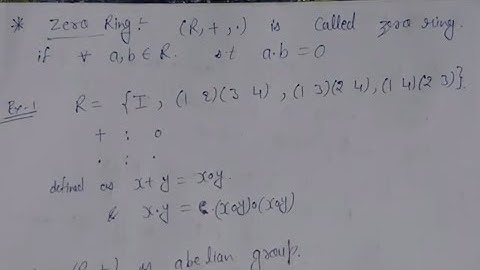 * Zero Ring :- (R, +, .) is called zero ring.
if ∀ a,b ∈ R. s.t a.b = 0
Ex-1 R = {I, (1 2)(3 4), (1 3)(2 4), (1 4)(2 3)}.
+ : o
. : .
defined as x+y = xoy.
& x.y = (xoy)o(xoy)
(R, +) is abelian group.